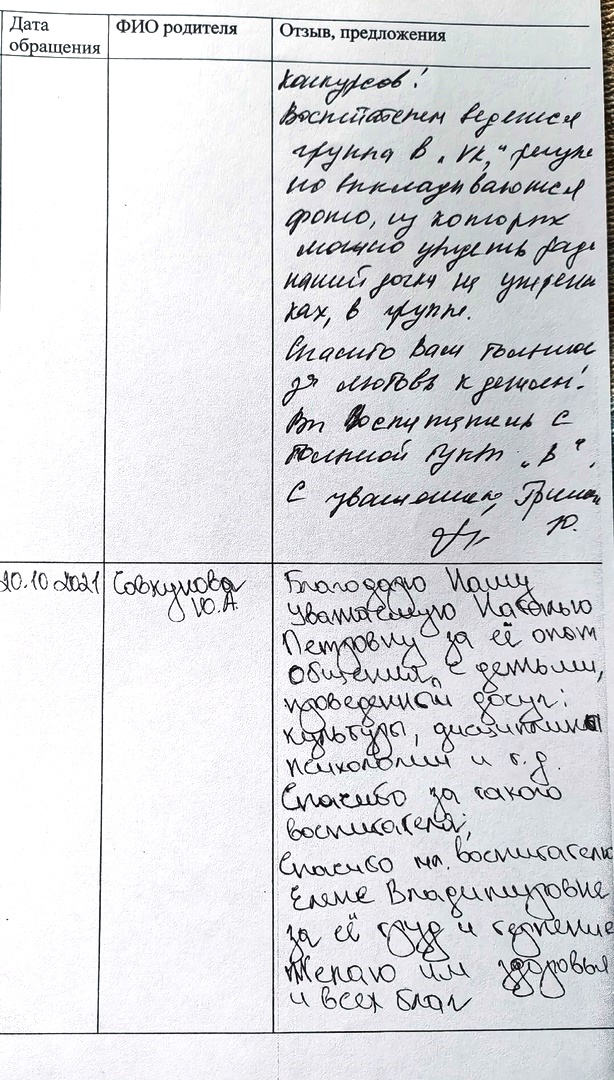 Дата обращения
ФИО родителя
Отзыв, предложения
конкурсов!
Воспитателем ведется
группа в „VK,"
но выкладываются
фото, из которых
можно увидеть
нашей дочки на
ках, в группе.
Спасибо Вам большое
за любовь к детям!
Вы Воспитатель с
большой букв „В",
С уважением, Гришин
Ю.
20.10.2021
Совкунова
Ю.А.
Благодарю Нашу
Уважаемую Наталью
Петровну за её опыт
общения с детьми,
проведенный досуг:
культуры, дисциплины
психологии и т.д.
Спасибо за такого
воспитателя;
Спасибо мл. воспитателю
Елене Владимировне
за её труд и терпение
Желаю им здоровья
и всех благ